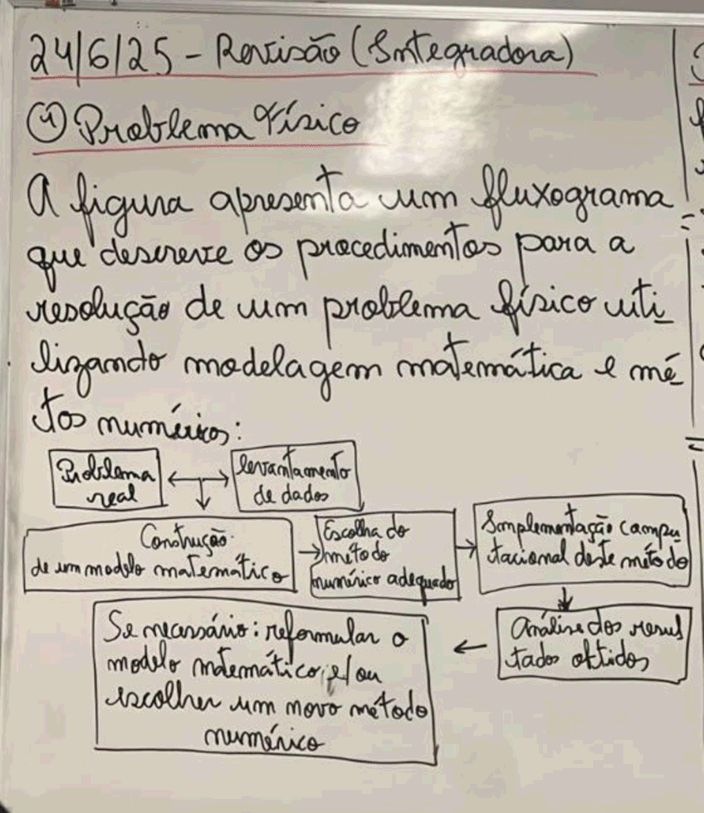 24/6/25 - Revisão (Integradora)
① Problema Físico
A figura apresenta um fluxograma
que descreve os procedimentos para a
resolução de um problema físico uti
lizando modelagem matemática e mé
tos numéricos:
Problema
real
levantamento
de dados
Construção
de um modelo matemático
Escolha do
método
numérico adequado
Implementação compu
tacional deste método
Análise dos resul
tados obtidos
Se necessário: reformular o
modelo matemático e/ou
escolher um novo método
numérico